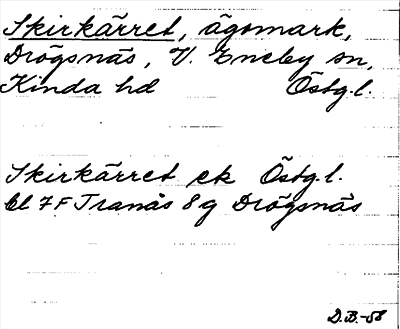 Skirkärret, ägomark,
Drögsnäs, V. Eneby sn,
Kinda hd Östg.l.
Skirkärret ek Östg.l.
bl 7F Tranås 8g Drögsnäs
D.B.-58